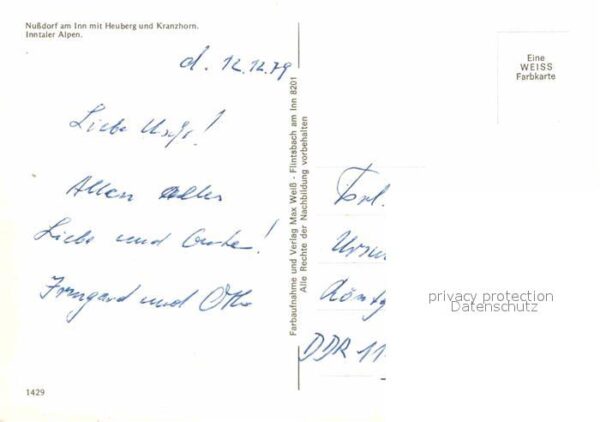 Nußdorf am Inn mit Heuberg und Kranzhorn.
Inntaler Alpen.
d. 12.12.79
Liebe
Allen alles
Liebe und Gute!
Irmgard und Otto
1429
Farbaufnahme und Verlag Max Weiß - Flintsbach am Inn 8201
Alle Rechte der Nachbildung vorbehalten
Eine
WEISS
Farbkarte
Frl.
Ursu
Röntg
DDR 11
privacy protection
Datenschutz